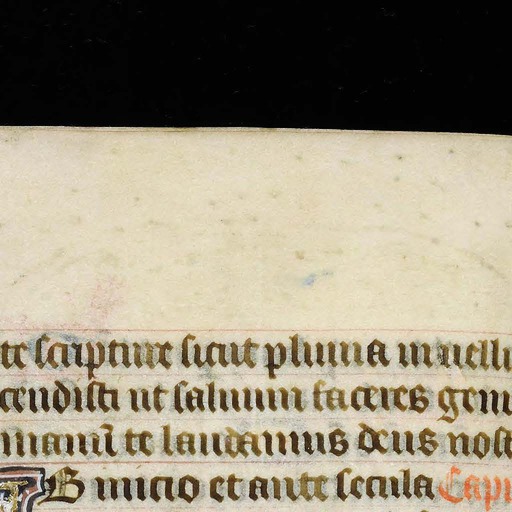 te scripture sicut pluuia in uellu
cendisti ut saluum faceres genu
te laudamus deus nost
AB inicio et ante secula Capi